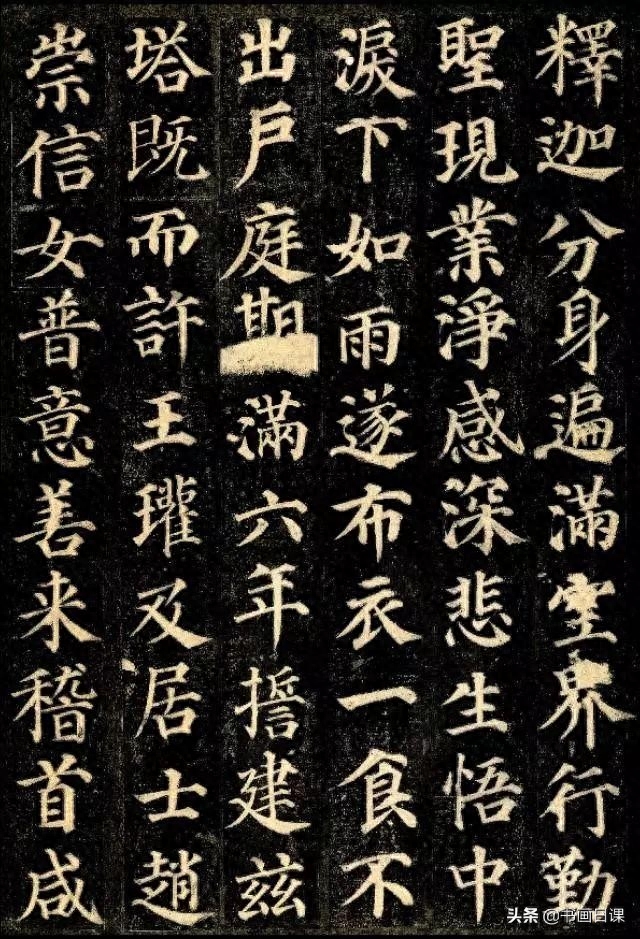 釋迦分身遍滿空界行勤
聖現業淨感深悲生悟中
淚下如雨遂布衣一食不
出戶庭期滿六年誓建兹
塔既而許王瓘及居士趙
崇信女普意善来稽首咸
头条 @书画日课